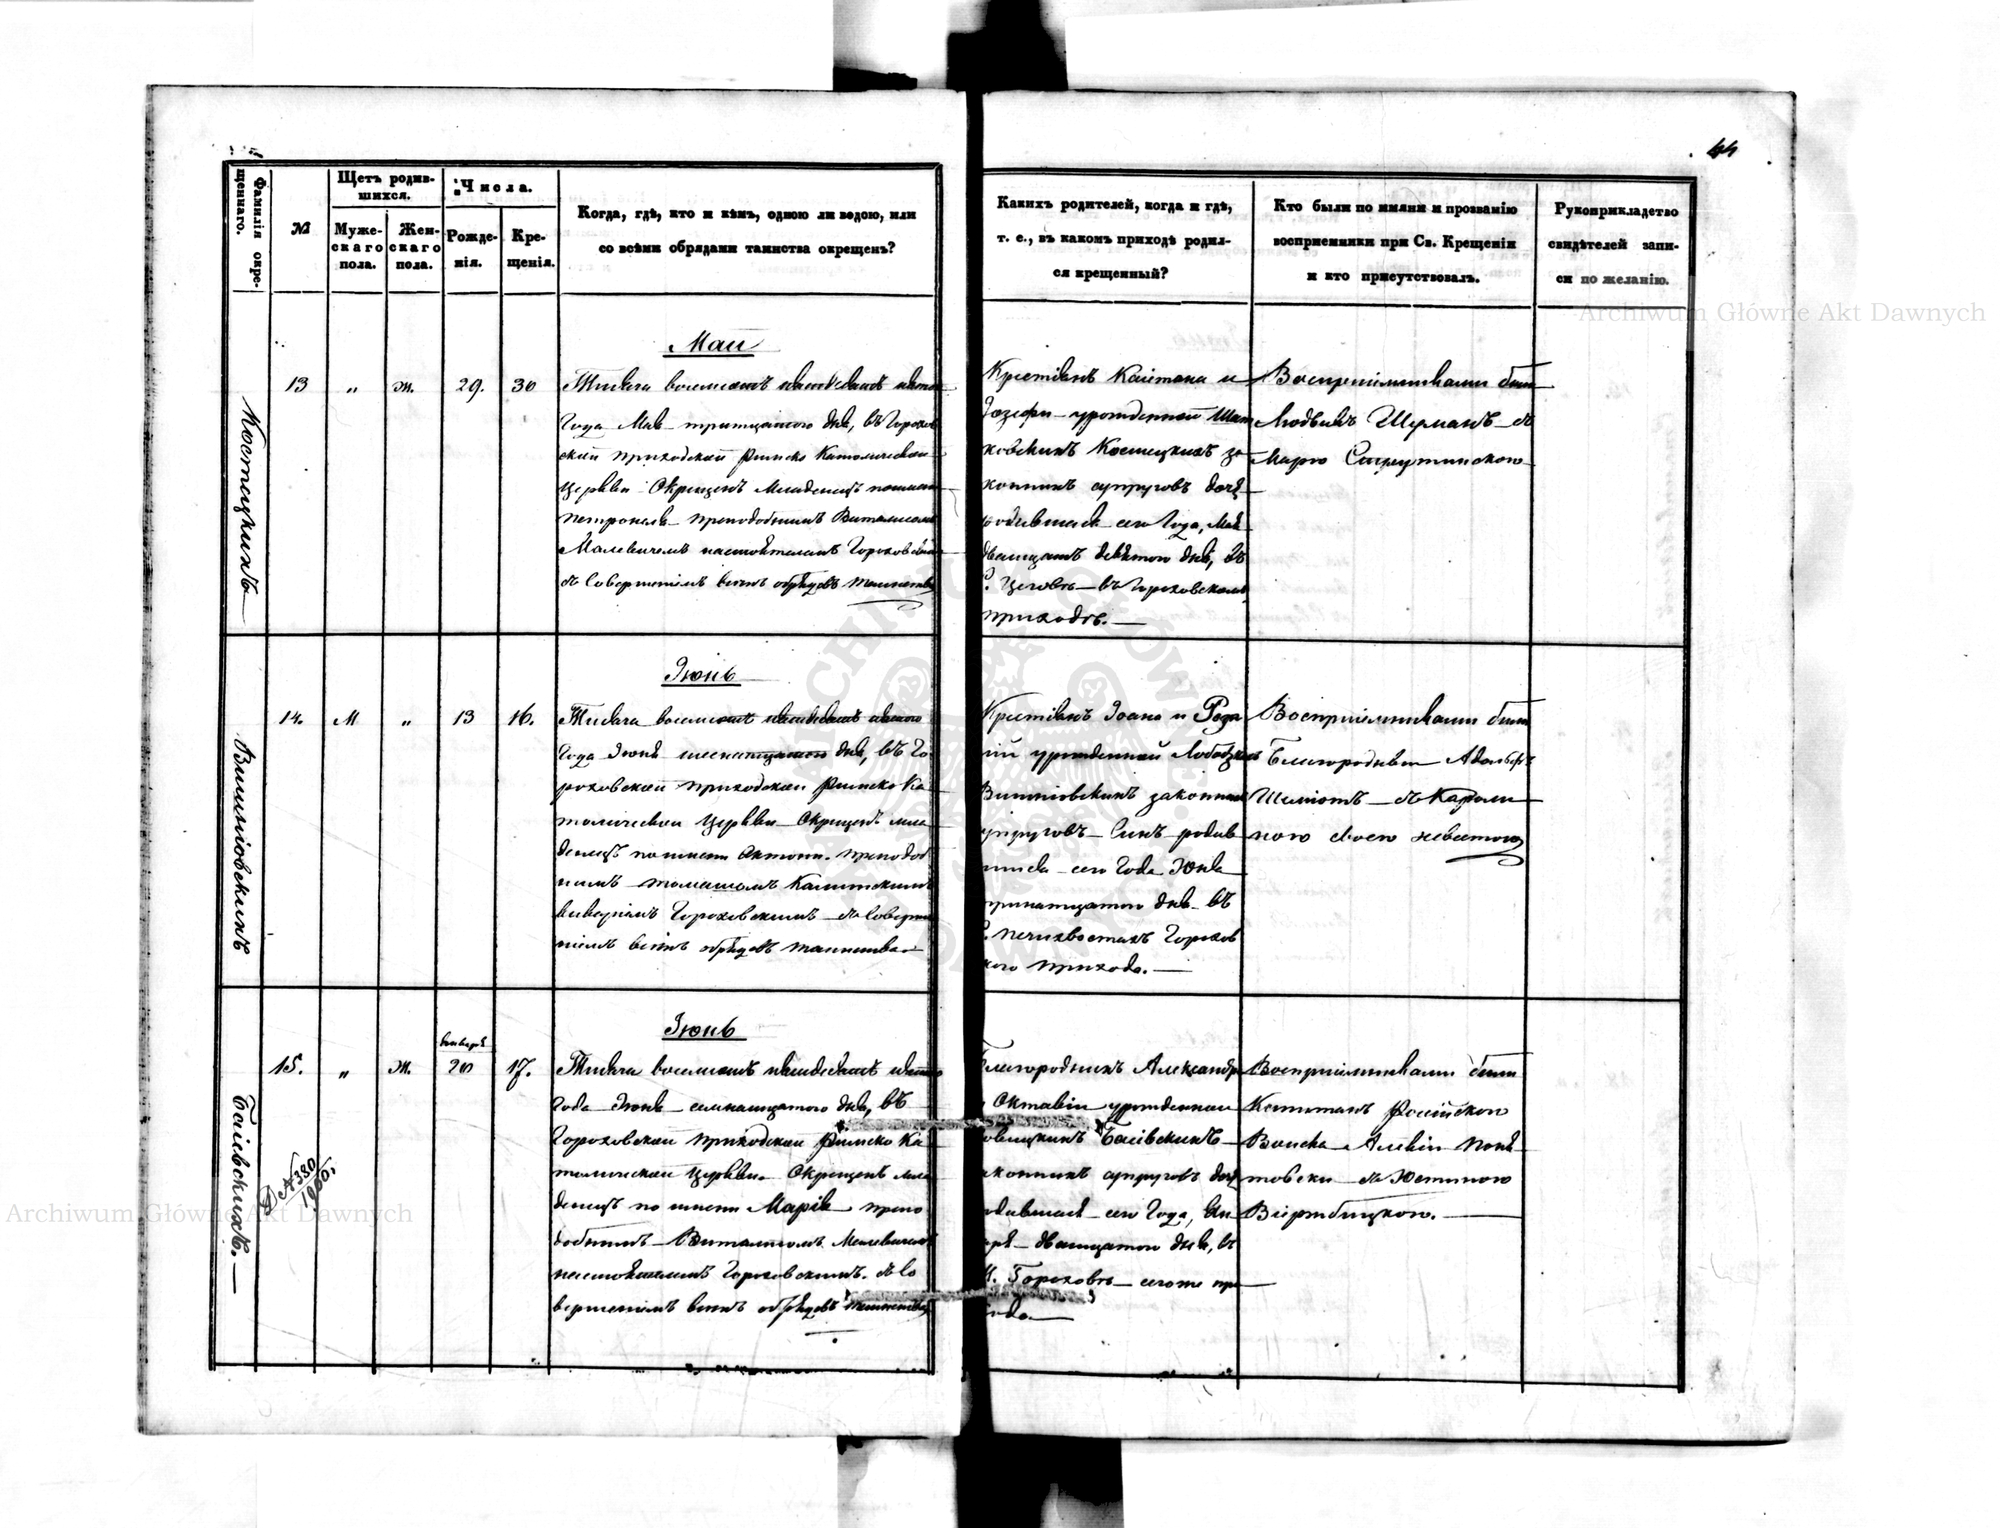 44
Фамилія окре-
щеннаго.
№
Щетъ родив-
шихся.
Муже-
скаго
пола.
Жен-
скаго
пола.
Числа.
Рожде-
нія.
Кре-
щенія.
Когда, гдѣ, кто и кѣмъ, одною ли водою, или
со всѣми обрядами таинства окрещенъ?
Каихъ родителей, когда и гдѣ,
т. е., въ какомъ приходѣ родил-
ся крещенный?
Кто были по имяни и прозванію
восприемники при Св. Крещеніи
и кто присутствовалъ.
Рукоприкладство
свидѣтелей запи-
си по желанію.
Archiwum Główne Akt Dawnych
Костецкихъ
13
"
Ж.
29.
30
Май
Тысяча восемьсотъ
Года Мая тритцатого дня, въ Горохов
ской приходской Римско Католической
Церкви Окрещенъ Младенецъ по имени
Петронеля преподобнымъ Виталисомъ
Малевичемъ настоятелемъ Гороховскимъ
съ Совершеніемъ всѣхъ обрядовъ таинства
Крестьянъ Каетана и
Іозефы урожденной
Костецкихъ за
конныхъ супруговъ дочь
родившаяся сего Года, Мая
двадцать девятого дня, въ
С. Цеговѣ въ Гороховскомъ
приходѣ.
Воспріемниками были
Людвикъ Шуманъ съ
Марію Струтинского
Вишніовскихъ
14.
М
"
13
16.
Іюнь
Тысяча восемьсотъ
Года Іюня шеснатцатого дня, въ Го
роховской приходской Римско Ка
толической Церкви Окрещенъ мла
денецъ по имени Антони. преподоб
нымъ Томашомъ Калитскимъ
викаріемъ Гороховскимъ съ Соверше
ніемъ всѣхъ обрядовъ таинства
Крестьянъ Іоана и Роза
ліи урожденной
Вишніовскихъ законныхъ
супруговъ Сынъ родив
шійся сего Года Іюня
тринатцатого дня въ
С. Печихвостахъ Горохов
ского прихода.
Воспріемниками были
Благородный Адольфъ
Шеміотъ съ Кароли
ною своею невесткою
Баіевскихъ.
Д №380/1900.
15.
"
Ж.
Января
20
17.
Іюнь
Тысяча восемьсотъ
Года Іюня семнатцатого дня, въ
Гороховской приходской Римско Ка
толической Церкви Окрещенъ мла
денецъ по имени Марія препо
добнымъ Виталисомъ Малевичемъ
настоятелемъ Гороховскимъ. съ Со
вершеніемъ всѣхъ обрядовъ таинства
Благородныхъ Александра
и Октавіи урожденной
Баіевскихъ
законныхъ супруговъ дочь
родившаяся сего Года, Ян
варя двадцатого дня, въ
М. Гороховѣ сегоже при
хода
Воспріемниками были
Капитанъ Россійского
Войска Алексій Поня
товски съ Юстиною
Виржбицкою.
Archiwum Główne Akt Dawnych